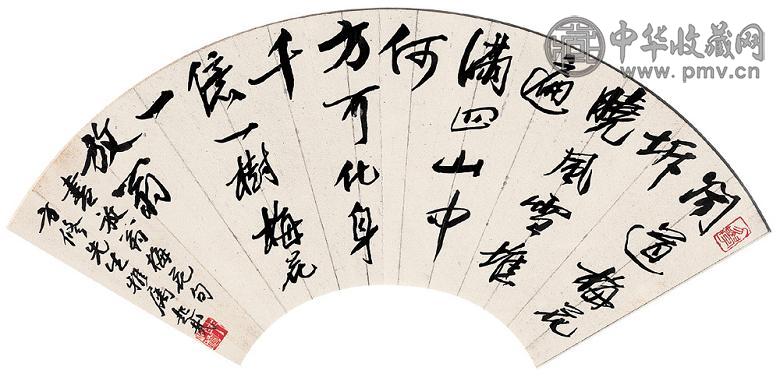 中华收藏网
www.pmv.cn
闻道梅花
坼
曉風雪堆
遍
滿四山中
何
方可化身
千
億一樹梅花
一
放翁
書放翁梅花句
方修先生雅属